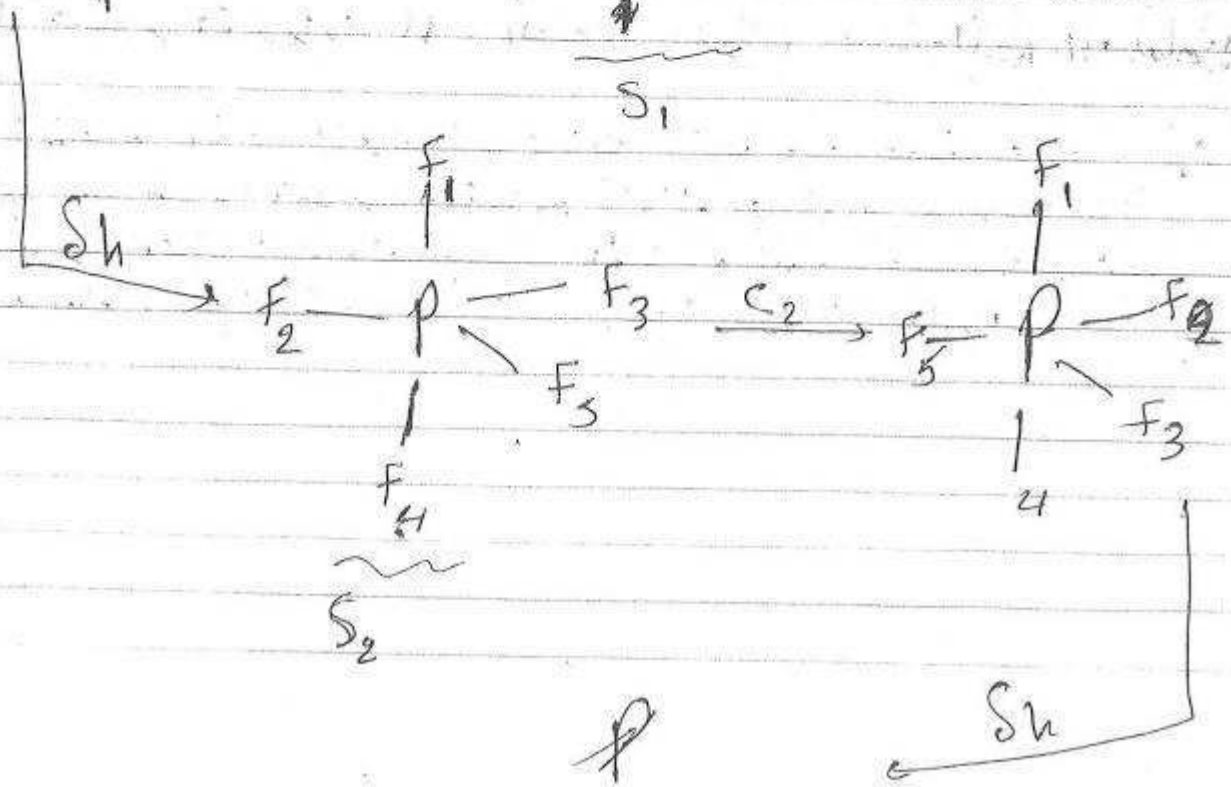 S1
F1 F1
δh
F2 P F3 C2 F5 P F2
F5 F3
F4 4
S2
P δh